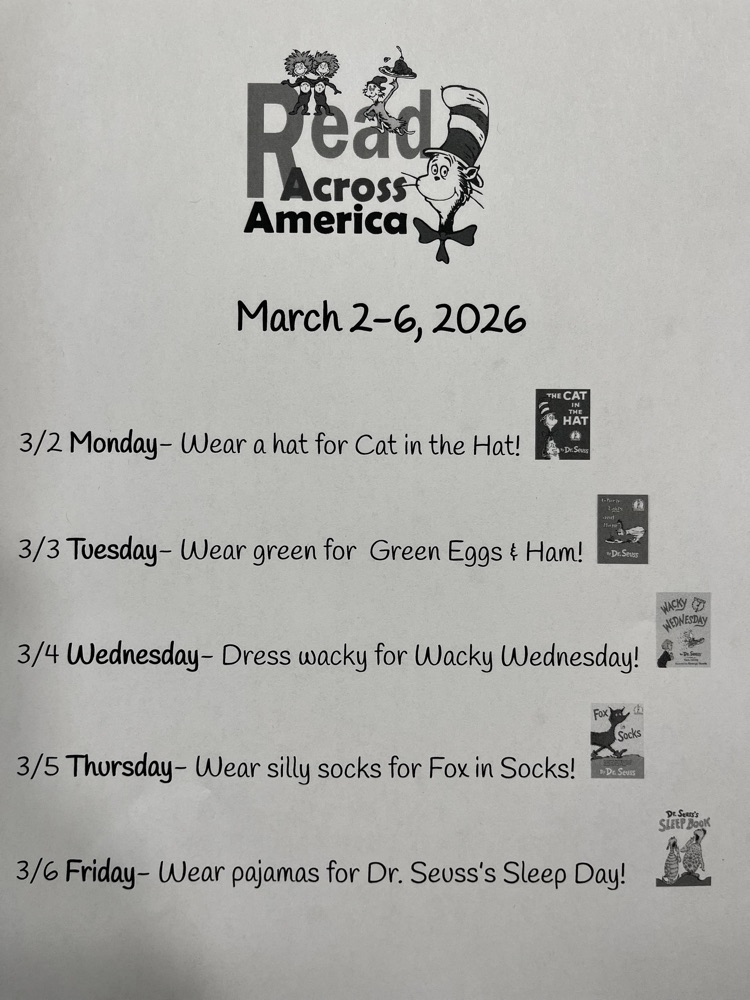 Read
Across
America
March 2-6, 2026
THE CAT
IN
THE
HAT
By Dr. Seuss
3/2 Monday- Wear a hat for Cat in the Hat!
By Dr. Seuss
3/3 Tuesday- Wear green for Green Eggs & Ham!
WACKY
WEDNESDAY
3/4 Wednesday- Dress wacky for Wacky Wednesday!
Fox
in
Socks
By Dr. Seuss
3/5 Thursday- Wear silly socks for Fox in Socks!
Dr. Seuss's
SLEEP BOOK
3/6 Friday- Wear pajamas for Dr. Seuss's Sleep Day!